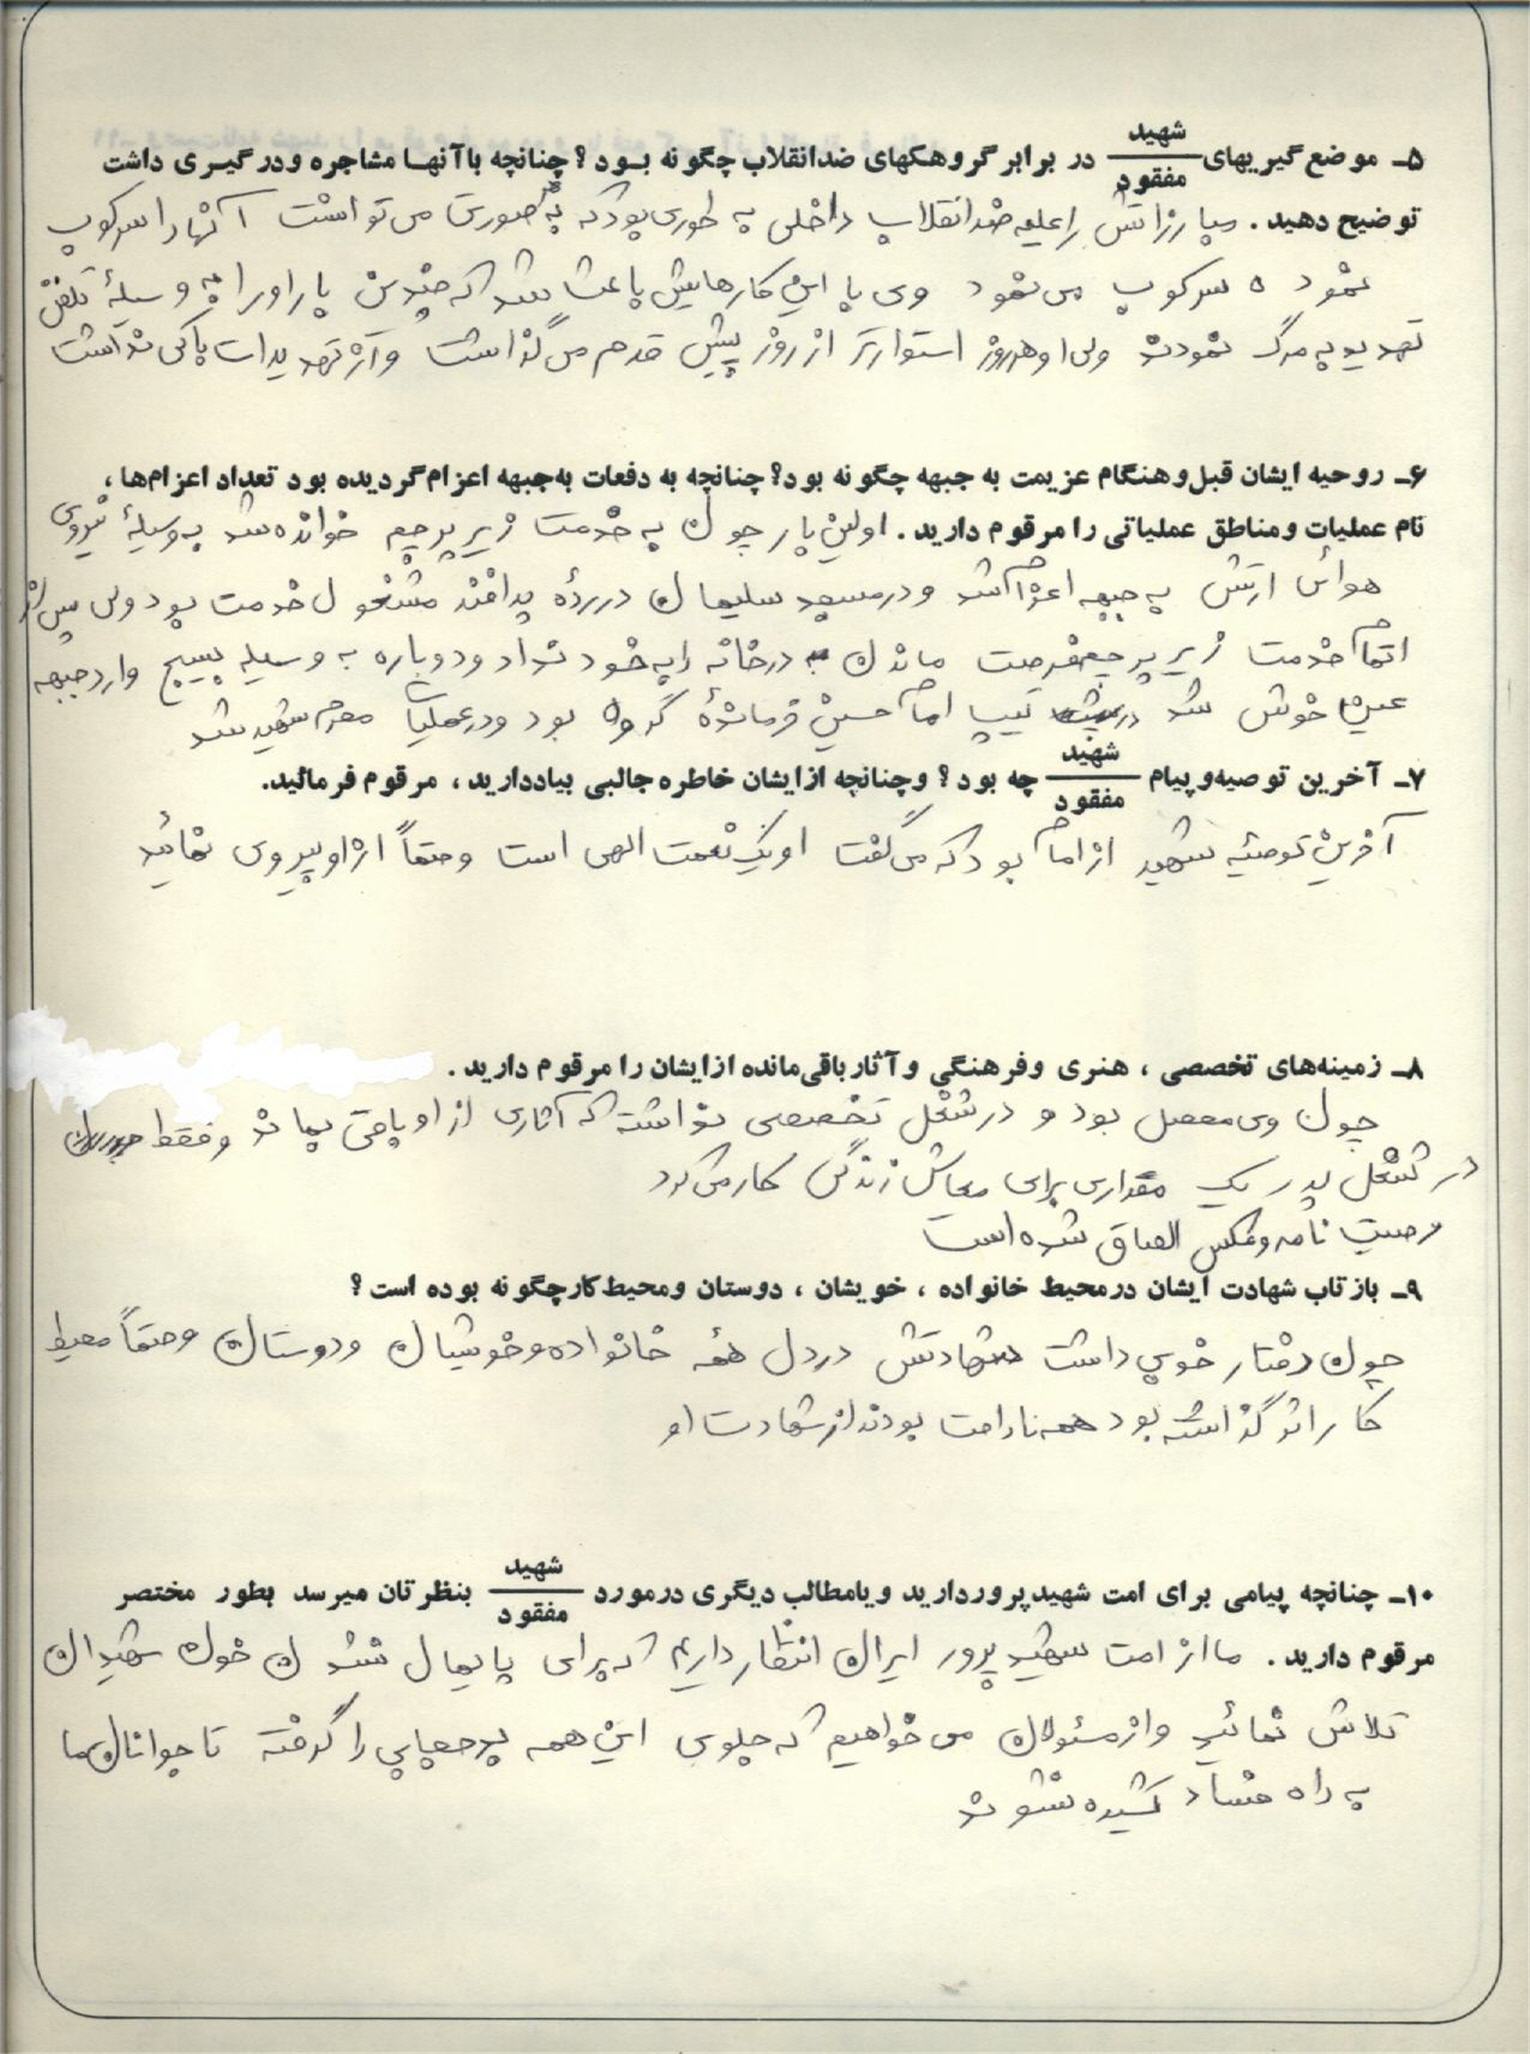 ۵ـ موضع گیریهای شهید/مفقود در برابر گروهکهای ضدانقلاب چگونه بود؟ چنانچه باآنها مشاجره ودرگیری داشت
توضیح دهید. مبارزاتش را علیه ضد انقلاب داخلی به طوری بود که به هر صورت می توانست آنها را سرکوب
نمود ه سرکوب می نمود وی با این کارهایش باعث شد که چندین بار او را به وسیلهٔ تلفن
تهدید به مرگ نمودند ولی او هر روز استوارتر از روز پیش قدم می گذاشت و از تهدیدات باکی نداشت
۶ـ روحیه ایشان قبل وهنگام عزیمت به جبهه چگونه بود؟ چنانچه به دفعات به جبهه اعزام گردیده بود تعداد اعزام‌ها،
نام عملیات ومناطق عملیاتی را مرقوم دارید. اولین بار چون به خدمت زیر پرچم خوانده شد به وسیلهٔ نیروی
هوائی ارتش به جبهه اعزام شد و در مسجد سلیمان در ردهٔ پدافند مشغول خدمت بود ولی پس از
اتمام خدمت زیر پرچم فرصت ماندن در خانه را به خود نداد و دوباره به وسیله بسیج وارد جبهه
خونش شد در تیپ امام حسین فرماندهٔ گروه بود و در عملیات محرم شهید شد
۷ـ آخرین توصیه وپیام شهید/مفقود چه بود؟ وچنانچه ازایشان خاطره جالبی بیاددارید، مرقوم فرمائید.
آخرین توصیه شهید از امام بود که می گفت او یک نعمت الهی است و حتماً از او پیروی نمائید
۸ـ زمینه‌های تخصصی، هنری وفرهنگی وآثارباقی‌مانده ازایشان را مرقوم دارید.
چون وی محصل بود و در شغل تخصصی نداشت که آثاری از او باقی بماند و فقط
در شغل پدر یک مقداری برای معاش زندگی کار می کرد
وصیت نامه و عکس الصاق شده است
۹ـ بازتاب شهادت ایشان درمحیط خانواده، خویشان، دوستان ومحیط کارچگونه بوده است؟
چون رفتار خوبی داشت شهادتش در دل همهٔ خانواده و خویشان و دوستان و حتماً محیط
کار اثر گذاشته بود همه ناراحت بودند از شهادت او
۱۰ـ چنانچه پیامی برای امت شهیدپروردارید ویامطالب دیگری درمورد شهید/مفقود بنظرتان میرسد بطور مختصر
مرقوم دارید. ما از امت شهید پرور ایران انتظار داریم که برای پایمال نشدن خون شهیدان
تلاش نمائید و از مسئولان می خواهیم که جلوی این همه بی حجابی را گرفته تا جوانان ما
به راه فساد کشیده نشوند